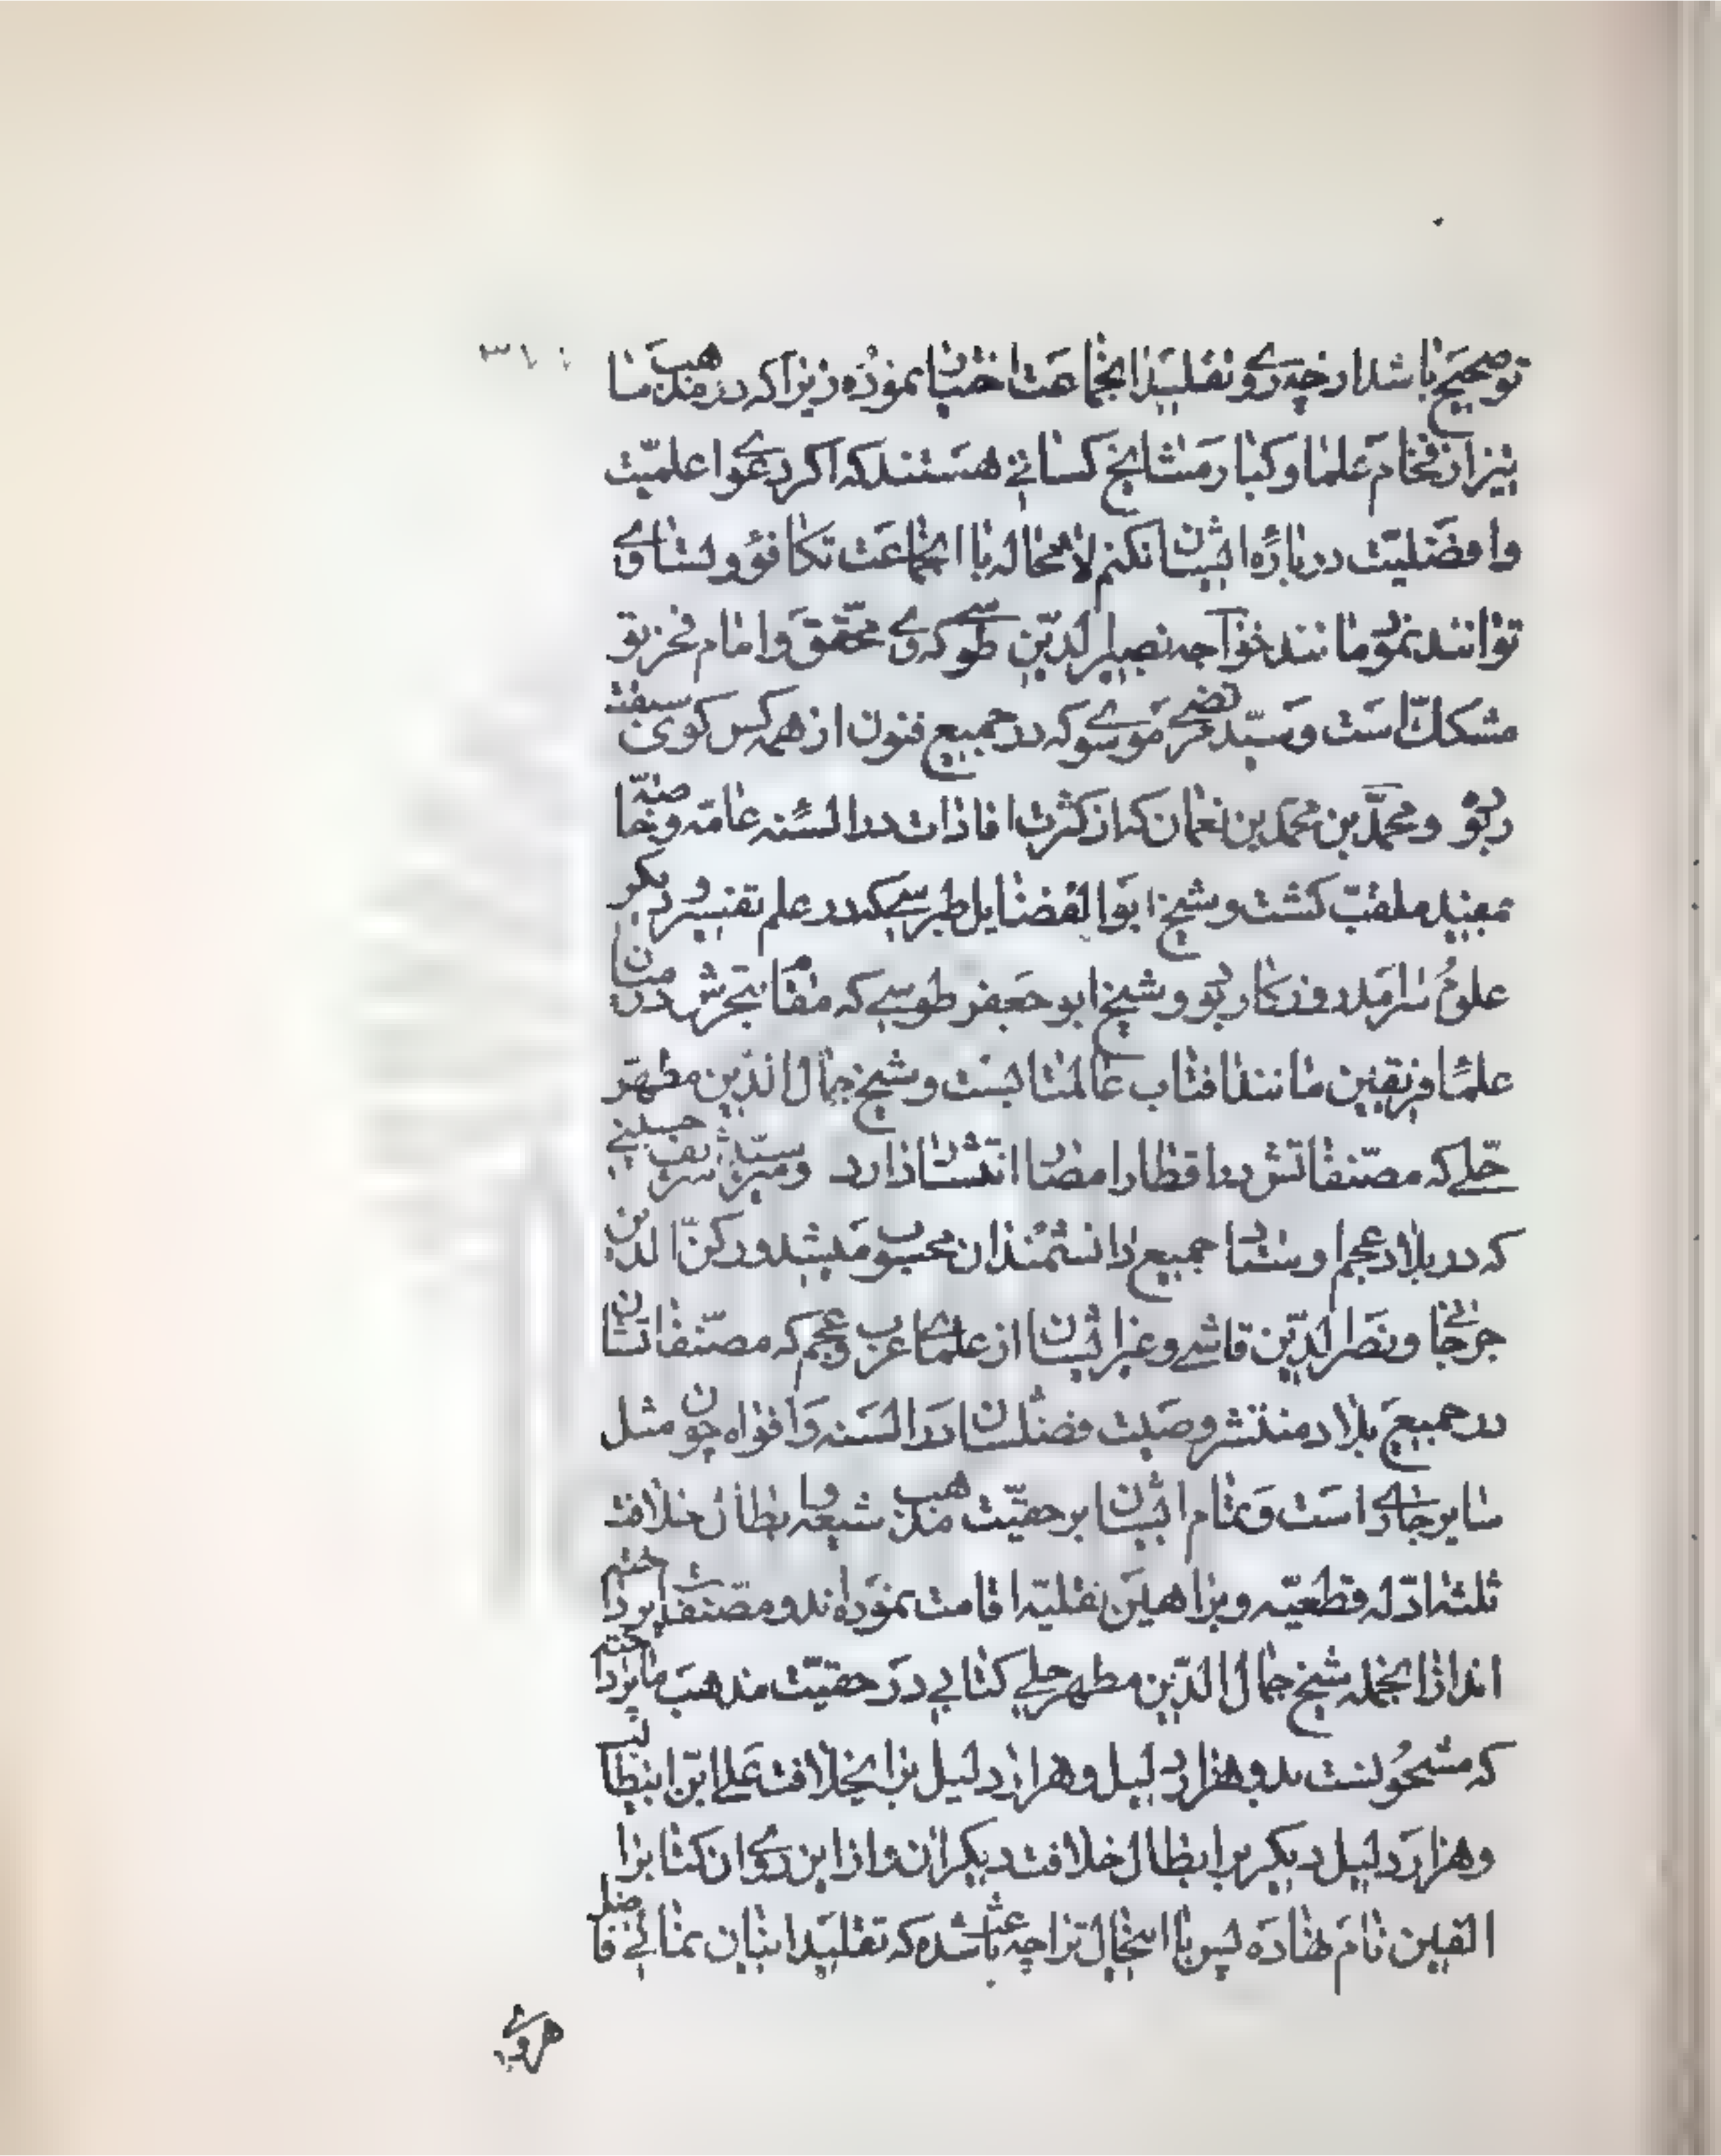 تو صحیح باشد از چه رو تقلید اینجماعت اختیار نموده زیرا که در مذهب ما
نیز از فخام علما و کبار مشایخ کسانی هستند که اگر دعوی اعلمیت
و افضلیت درباره ایشان نکنم لا محاله با اینجماعت تکافؤ و تساوی
توانند نمود مانند خواجه نصیر الدین طوسی که وی محقق و امام فخر تو
مشکک است و سید مرتضی موسوی که در جمیع فنون از همه کس کوی سبقت
ربود و محمد بن محمد بن نعمان که از کثرت افادات در السنه عامه و خاصه
بمفید ملقب کشت و شیخ ابو الفضایل طبرسی که در علم تفسیر و دیکر
علوم سرآمد روزکار بود و شیخ ابو جعفر طوسی که مقام تبحرش در میان
علماء فریقین مانند افتاب عالمتابست و شیخ جمال الدین مطهر
حلی که مصنفاتش در اقطار امصار انتشار دارد و میر سید شریف حسینی
که در بلاد عجم اوستاد جمیع دانشمندان محسوب میشد و رکن الدین
جرجانی و نصر الدین قاشی و غیر ایشان از علمای عرب و عجم که مصنفاتشان
در جمیع بلاد منتشر و صیت فضلشان در السنه و افواه چون مثل
سایر جاری است و تمام ایشان بر حقیت مذهب شیعه و ابطال خلافت
ثلثه ادله قطعیه و براهین نقلیه اقامت نموده اند و مصنفات پرداخته
اند از انجمله شیخ جمال الدین مطهر حلی کتابی در حقیت مذهب ما پرداخته
که مشحونست بدو هزار دلیل و هزار دلیل برای خلافت علی ابن ابیطالب
و هزار دلیل دیکر بر ابطال خلافت دیکران و از این روی ان کتابرا
الفین نام نهاده پس با اینحال ترا چه باعث شده که تقلید اینان نمائی فاضل
هروی